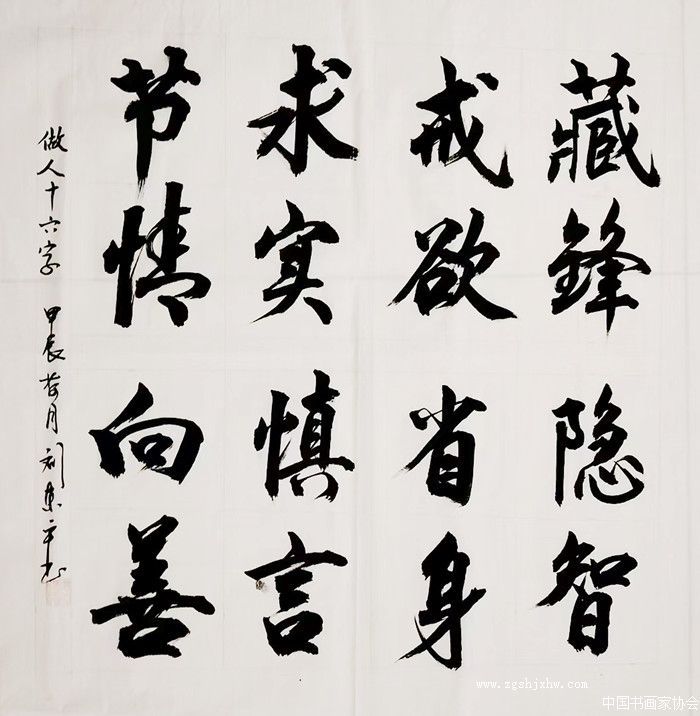 藏锋隐智
戒欲省身
求实慎言
节情向善
做人十六字 甲辰荷月刘东平书
www.zgshjxhw.com
中国书画家协会